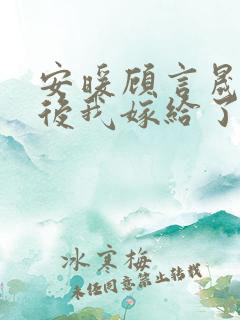 安暖顾言晟
後我嫁给了
冰寒梅
未经同意禁止转载